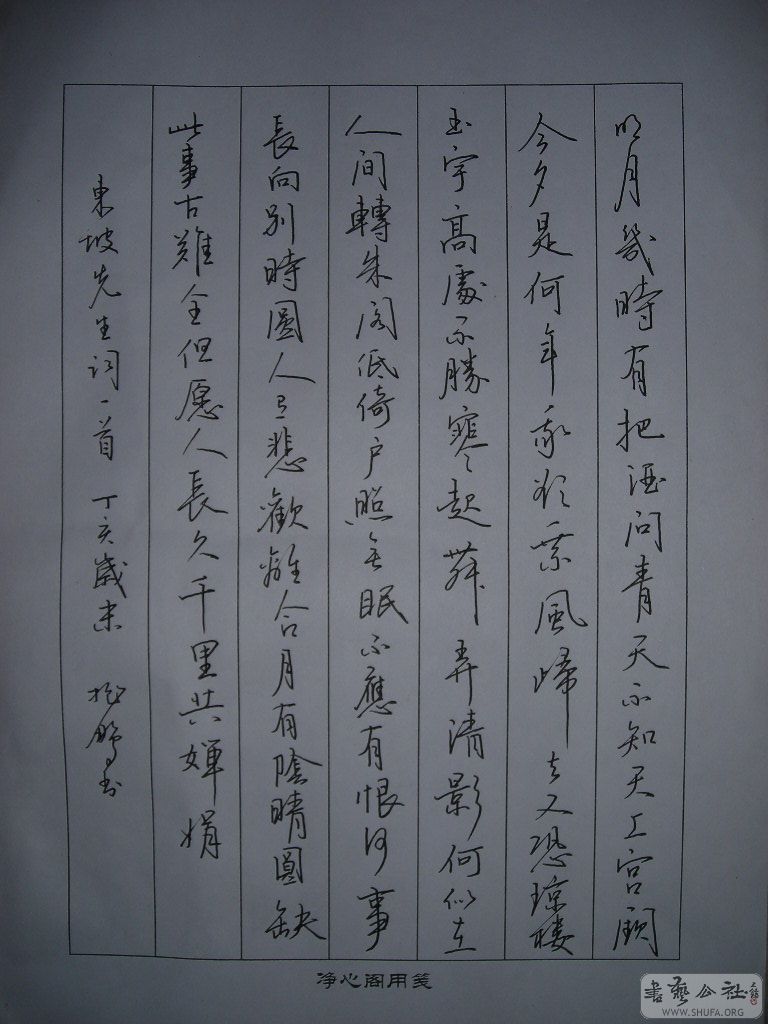 明月幾時有把酒问青天不知天上宫阙
今夕是何年我欲乘風歸去又恐琼楼
玉宇高處不勝寒起舞弄清影何似在
人间轉朱阁低绮户照無眠不應有恨何事
長向别時圆人有悲歡離合月有陰晴圆缺
此事古難全但愿人長久千里共婵娟
東坡先生词一首 丁亥歲末 鹏书
净心阁用笺
書藝公社
WWW.SHUFA.ORG